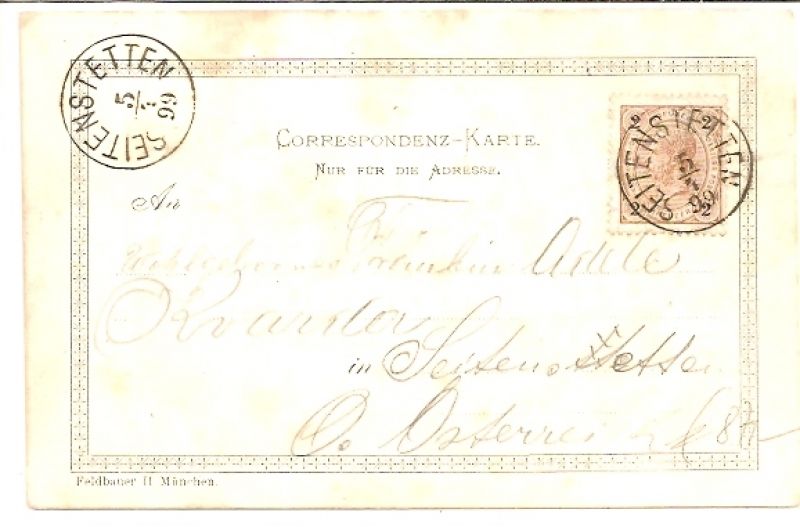 SEITENSTETTEN
5/1
99
2 2
SEITENSTETTEN
5/1
99
2 2
CORRESPONDENZ-KARTE.
NUR FÜR DIE ADRESSE.
An
Fr.
Wohlgebornes Fräulein Adele
Kvarda
in Seitenstetten
O. Österreich
Feldbauer II München.